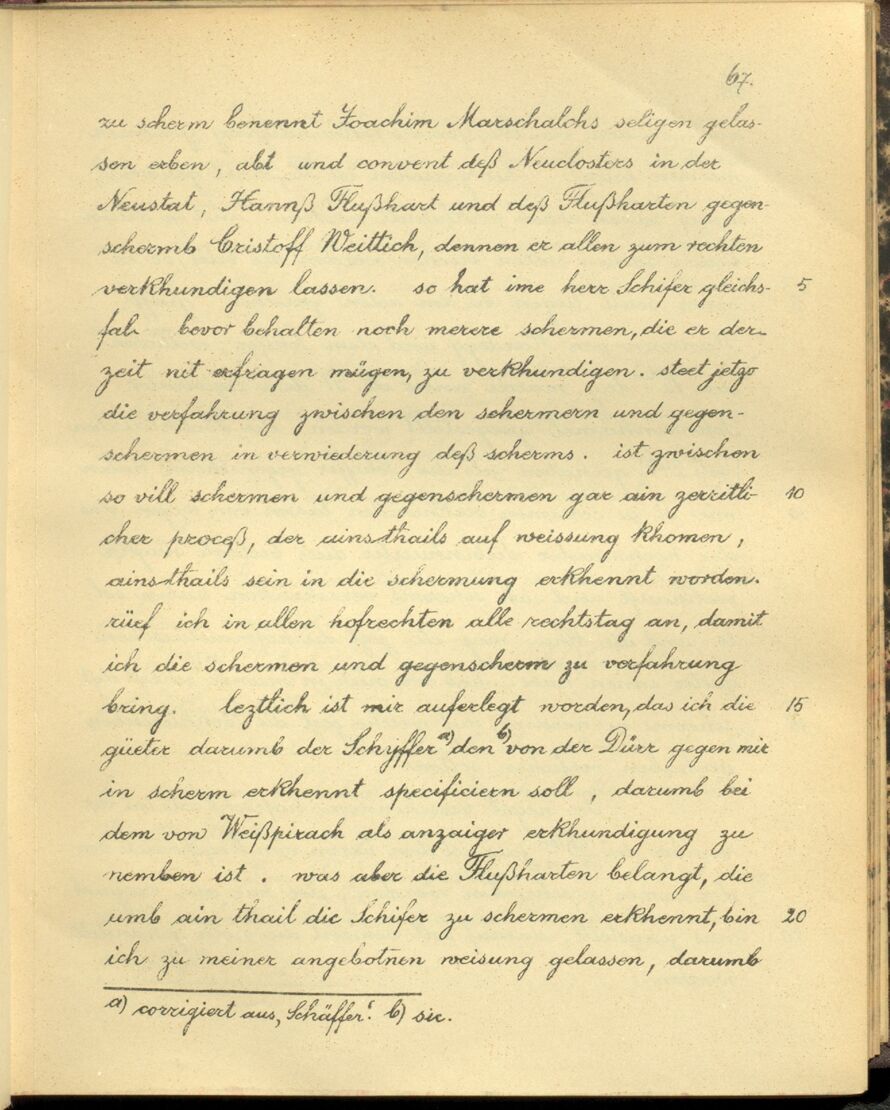 67.
zu scherm benennt Joachim Marschalchs seligen gelas-
sen erben, abt und convent deß Neuclosters in der
Neustat, Hannß Flußhart und deß Flußharten gegen-
schermb Cristoff Weittich, dennen er allen zum rechten
verkhundigen lassen. so hat ime herr Schifer gleichs- 5
fals bevor behalten noch merere schermen, die er der-
zeit nit erfragen mügen, zu verkhundigen. steet jetzo
die verfahrung zwischen den schermern und gegen-
schermen in verwiederung deß scherms. ist zwischen
so vill schermen und gegenschermen gar ain zerritli- 10
cher proceß, der ainsthails auf weissung khomen,
ainsthails sein in die schermung erkhennt worden.
rüef ich in allen hofrechten alle rechtstag an, damit
ich die schermen und gegenscherm zu verfahrung
bring. leztlich ist mir auferlegt worden, das ich die 15
güeter darumb der Schyffer a) den b) von der Dürr gegen mir
in scherm erkhennt specificiern soll, darumb bei
dem von Weißpirach als anzaiger erkhundigung zu
nemben ist. was aber die Flußharten belangt, die
umb ain thail die Schifer zu schermen erkhennt, bin 20
ich zu meiner angebotnen weisung gelassen, darumb
a) corrigiert aus „Schäffer“. b) sic.